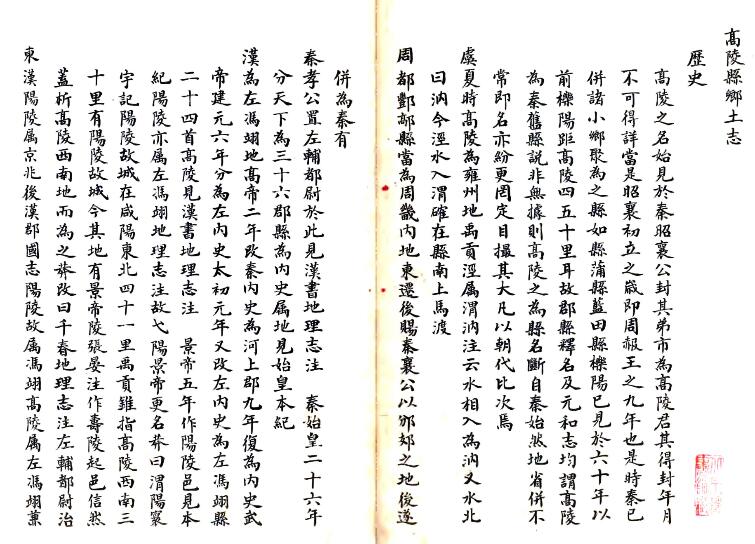 高陵縣鄉土志
歷史
高陵之名始見於秦昭襄公封其弟市為高陵君其得封年月
不可得詳當是昭襄初立之歲即周赧王之九年也是時秦已
併諸小鄉聚為之縣如縣蒲縣藍田縣櫟陽已見於六十年以
前櫟陽距高陵四五十里耳故郡縣釋名及元和志均謂高陵
為秦舊縣說非無據則高陵之為縣名斷自秦始然地省併不
常即名亦紛更罔定目撮其大凡以朝代比次焉
虞夏時高陵為雍州地禹貢涇屬渭汭注云水相入為汭又水北
曰汭今涇水入渭確在縣南上馬渡
周都酆鄗縣當為周畿內地東遷後賜秦襄公以邠郊之地後遂
併為秦有
秦孝公置左輔都尉於此見漢書地理志注 秦始皇二十六年
分天下為三十六郡縣為內史属地見始皇本紀
漢為左馮翊地高帝二年改秦內史為河上郡九年復為內史武
帝建元六年分為左內史太初元年又改左內史為左馮翊縣
二十四首高陵見漢書地理志注 景帝五年作陽陵邑見本
紀陽陵亦属左馮翊地理志注故弋陽景帝更名莽曰渭陽寰
宇記陽陵故城在咸陽東北四十一里禹貢錐指高陵西南三
十里有陽陵故城今其地有景帝陵張晏注作壽陵起邑信然
蓋析高陵西南地而為之莽改曰千春地理志注左輔都尉治
東漢陽陵属京兆後漢郡國志陽陵故属馮翊高陵属左馮翊蕙